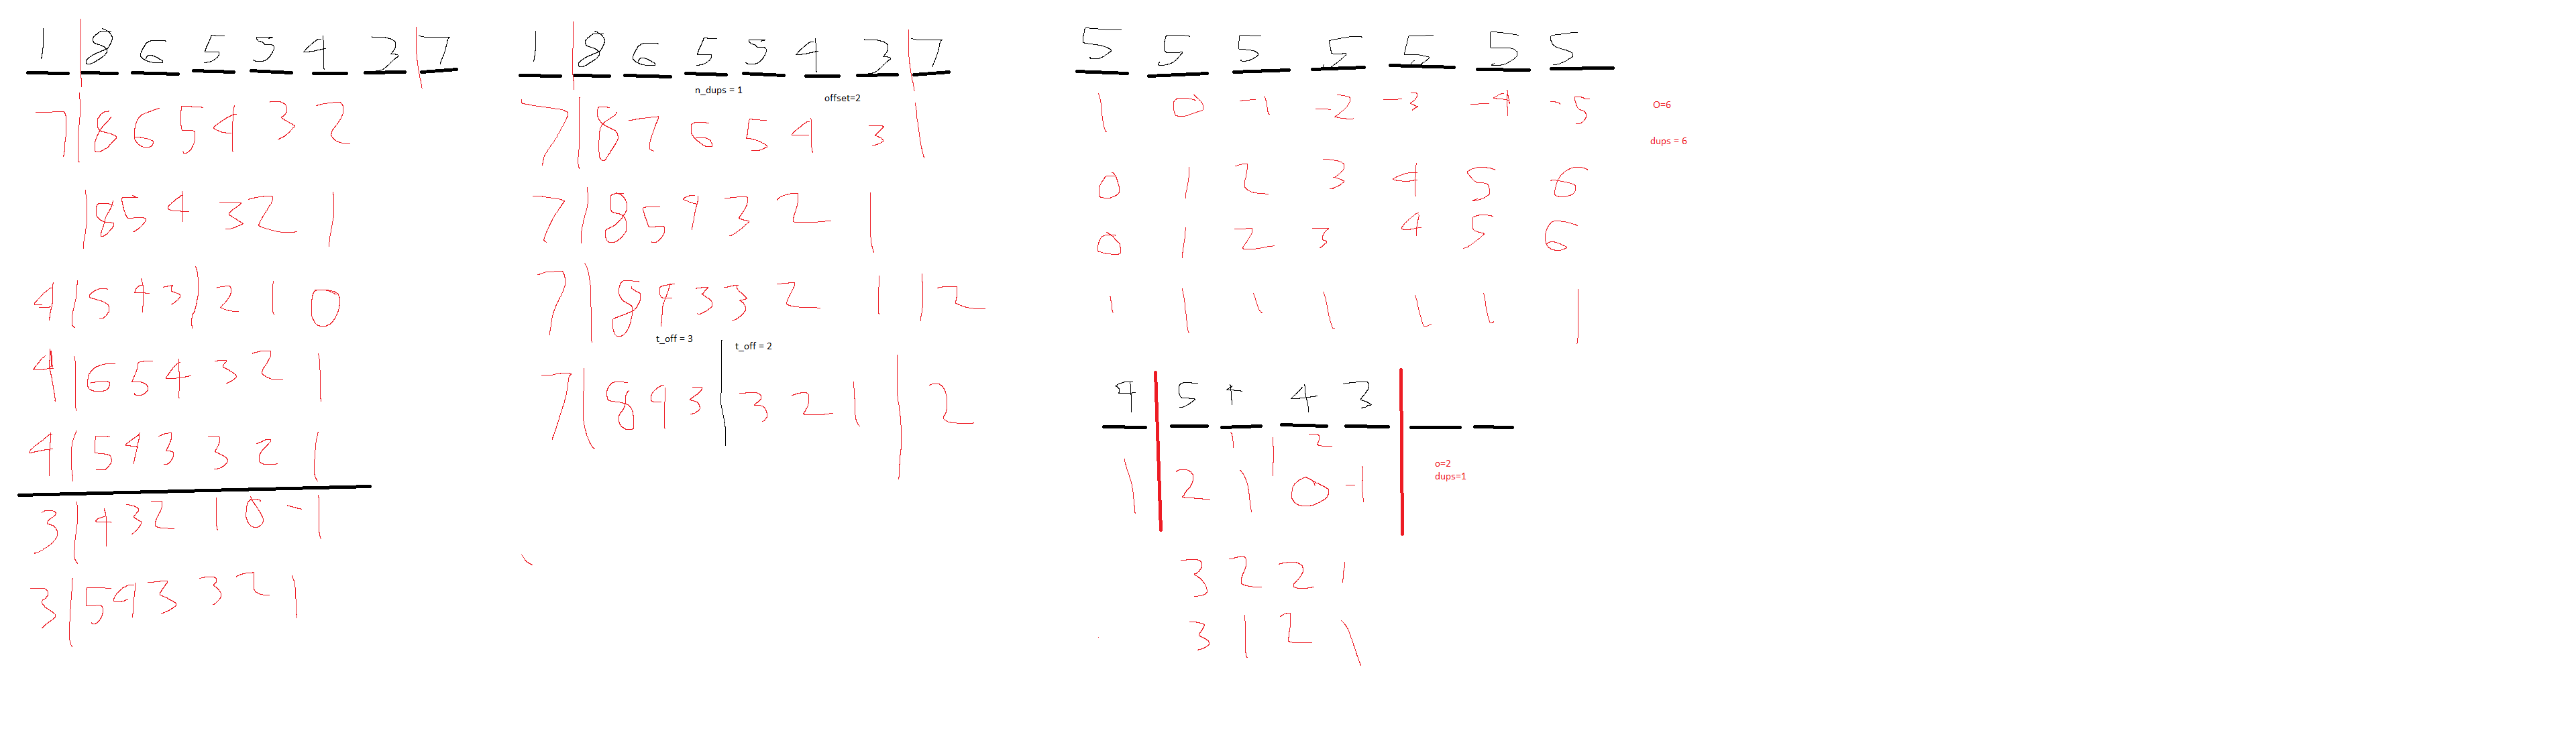 1 | 8 6 5 5 4 3 | 7
7 | 8 6 5 4 3 2
| 8 5 4 3 2 1
4 | 5 4 3 | 2 1 0
4 | 6 5 4 3 2 1
4 | 5 4 3 3 2 1
3 | 4 3 2 1 0 -1
3 | 5 4 3 3 2 1
1 | 8 6 5 5 4 3 | 7
n_dups = 1
offset=2
7 | 8 7 6 5 4 3 1
7 | 8 5 4 3 2 1
7 | 8 4 3 3 2 1 | 2
t_off = 3
t_off = 2
7 | 8 4 3 | 3 2 1 | 2
5 5 5 5 5 5 5
1 0 -1 -2 -3 -4 -5
O=6
dups = 6
0 1 2 3 4 5 6
0 1 2 3 4 5 6
1 1 1 1 1 1 1
4 | 5 4 4 3 |
1 | 2
1 | 2 1 0 -1
o=2
dups=1
3 2 2 1
3 1 2 1